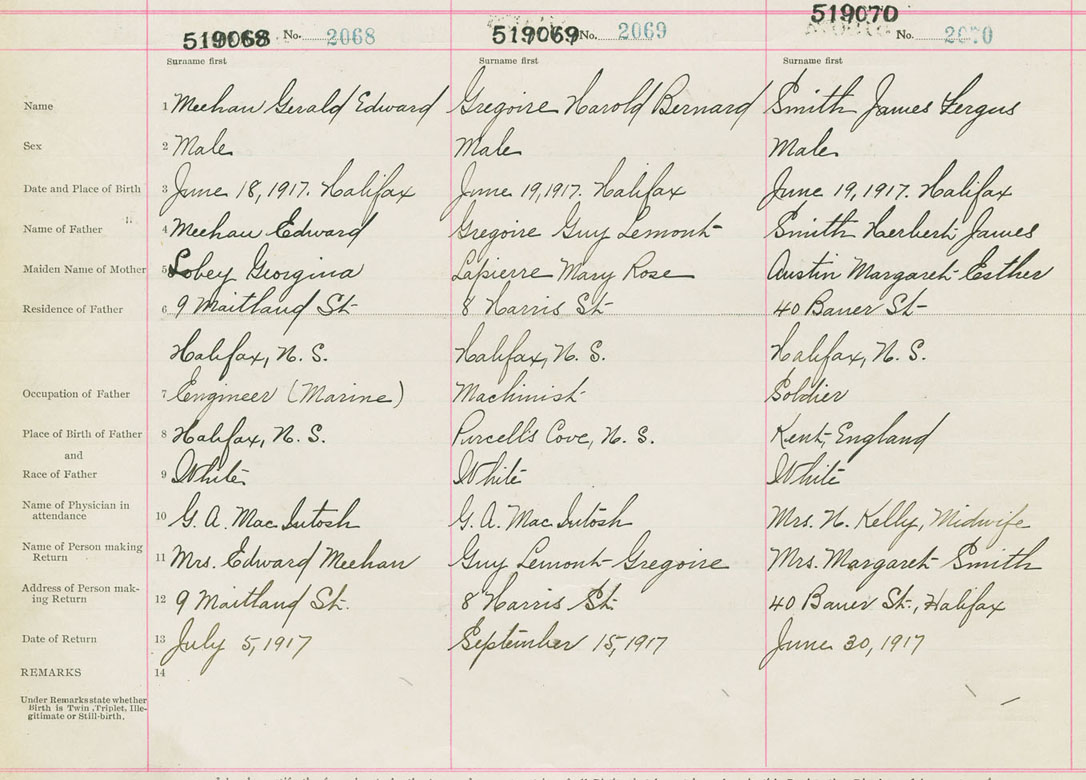 519068 No. 2068 519069 No. 2069 519070 No. 2070
Surname first Surname first Surname first
Name 1 Meehan Gerald Edward Gregoire Harold Bernard Smith James Fergus
Sex 2 Male Male Male
Date and Place of Birth 3 June 18, 1917. Halifax June 19, 1917. Halifax June 19, 1917. Halifax
Name of Father 4 Meehan Edward Gregoire Guy Lemont Smith Herbert James
Maiden Name of Mother 5 Lobey Georgina Lapierre Mary Rose Austin Margaret Esther
Residence of Father 6 9 Maitland St 8 Harris St 40 Bauer St
Halifax, N. S. Halifax, N. S. Halifax, N. S.
Occupation of Father 7 Engineer (Marine) Machinist Soldier
Place of Birth of Father 8 Halifax, N. S. Purcell's Cove, N. S. Kent, England
and
Race of Father 9 White White White
Name of Physician in
attendance 10 G. A. MacIntosh G. A. MacIntosh Mrs. N. Kelly, Midwife
Name of Person making
Return 11 Mrs. Edward Meehan Guy Lemont Gregoire Mrs. Margaret Smith
Address of Person mak-
ing Return 12 9 Maitland St. 8 Harris St. 40 Bauer St., Halifax
Date of Return 13 July 5, 1917 September 15, 1917 June 30, 1917
REMARKS 14
Under Remarks state whether
Birth is Twin, Triplet, Ille-
gitimate or Still-birth.